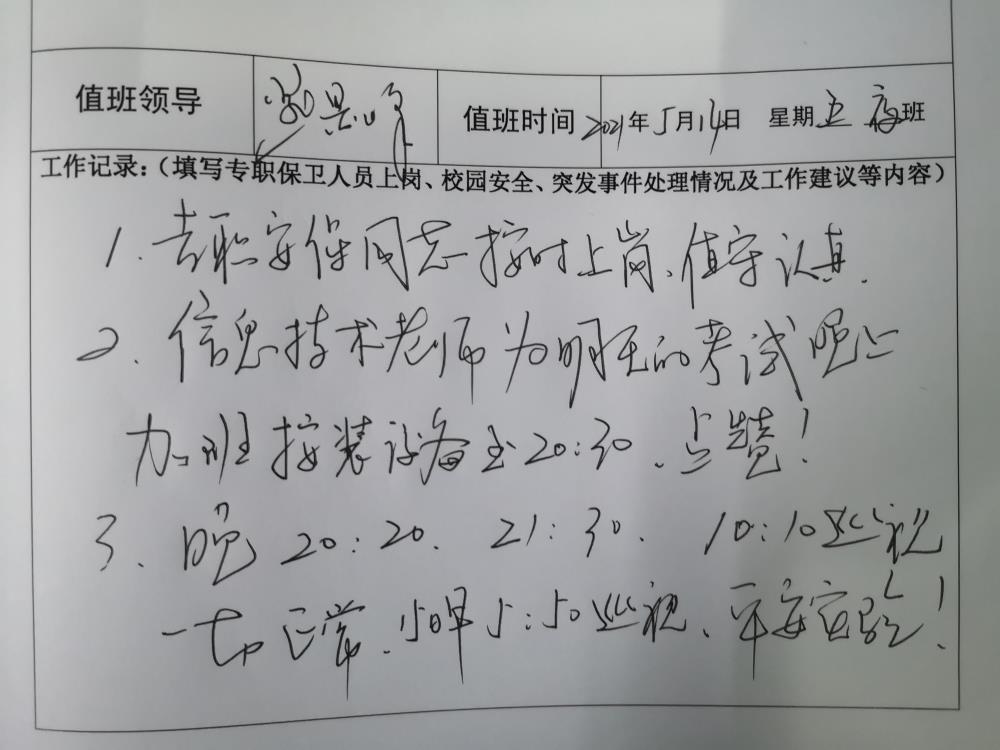 值班领导 值班时间 2021年5月14日 星期五夜班
工作记录:(填写专职保卫人员上岗、校园安全、突发事件处理情况及工作建议等内容)
1. 专职安保同志按时上岗、值守认真.
2. 信息技术老师为明天的考试晚上
加班按装设备至20:30、点赞!
3、晚20:20. 21:30. 10:10巡视
一切正常.明早5:50巡视、平安